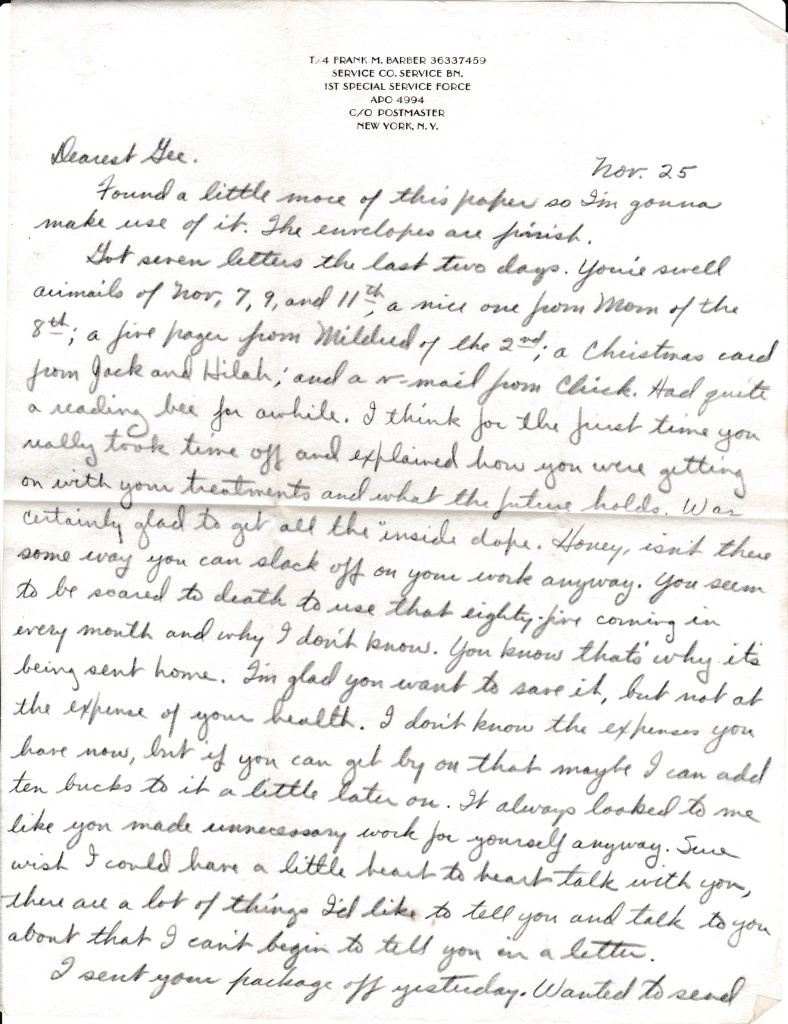 T/4 FRANK M. BARBER 36337459
SERVICE CO. SERVICE BN.
1ST SPECIAL SERVICE FORCE
APO 4994
C/O POSTMASTER
NEW YORK, N. Y.
Dearest Gee.
Nov. 25
Found a little more of this paper so I'm gonna
make use of it. The envelopes are finish.
Got seven letters the last two days. You're swell
airmails of Nov, 7, 9, and 11th, a nice one from Mom of the
8th; a five pager from Mildred of the 2nd; a Christmas card
from Jack and Hilah; and a v-mail from Chick. Had quite
a reading bee for awhile. I think for the first time you
really took time off and explained how you were getting
on with your treatments and what the future holds. Was
certainly glad to get all the "inside dope. Honey, isn't there
some way you can slack off on your work anyway. You seem
to be scared to death to use that eighty-five coming in
every month and why I don't know. You know that's why it's
being sent home. I'm glad you want to save it, but not at
the expense of your health. I don't know the expenses you
have now, but if you can get by on that maybe I can add
ten bucks to it a little later on. It always looked to me
like you made unnecessary work for yourself anyway. Sure
wish I could have a little heart to heart talk with you,
there are a lot of things I'd like to tell you and talk to you
about that I can't begin to tell you in a letter.
I sent your package off yesterday. Wanted to send